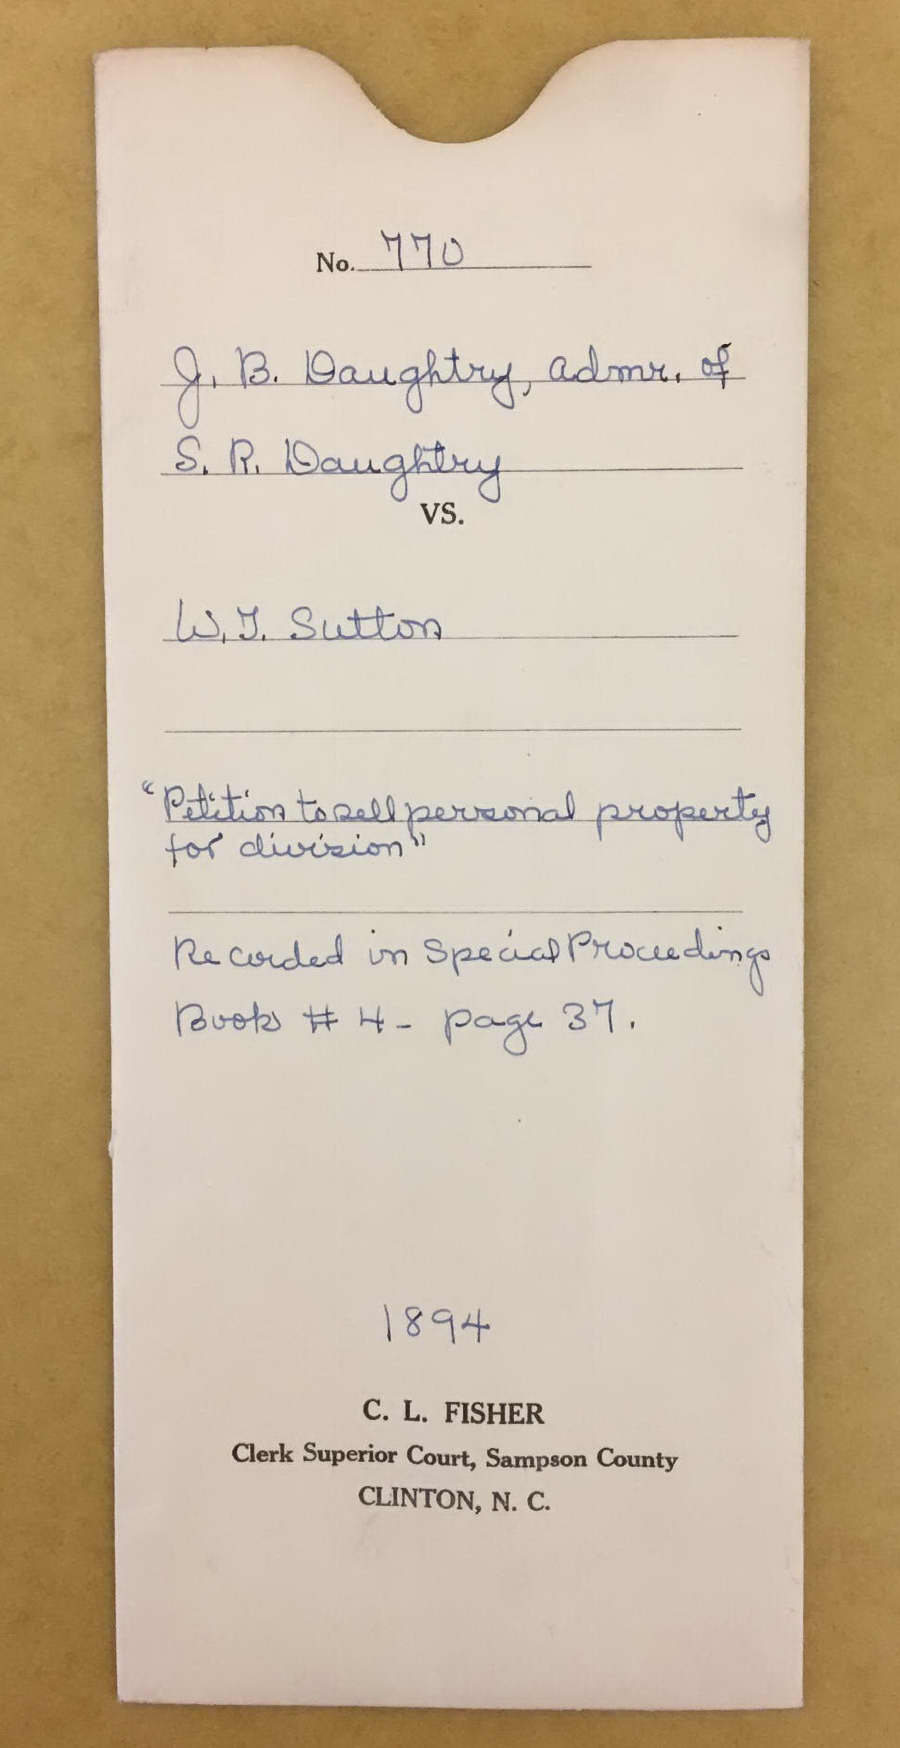 No. 770
J. B. Daughtry, admr. of
S. R. Daughtry
VS.
W. T. Sutton
"Petition to sell personal property
for division"
Recorded in Special Proceedings
Book # 4 - page 37.
1894
C. L. FISHER
Clerk Superior Court, Sampson County
CLINTON, N. C.